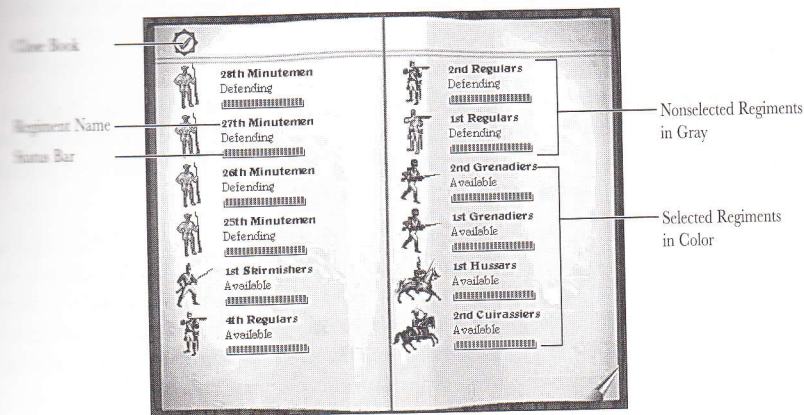 Close Book
28th Minutemen
Defending
Regiment Name
27th Minutemen
Defending
Status Bar
26th Minutemen
Defending
25th Minutemen
Defending
1st Skirmishers
Available
4th Regulars
Available
2nd Regulars
Defending
1st Regulars
Defending
2nd Grenadiers
Available
1st Grenadiers
Available
1st Hussars
Available
2nd Cuirassiers
Available
Nonselected Regiments
in Gray
Selected Regiments
in Color